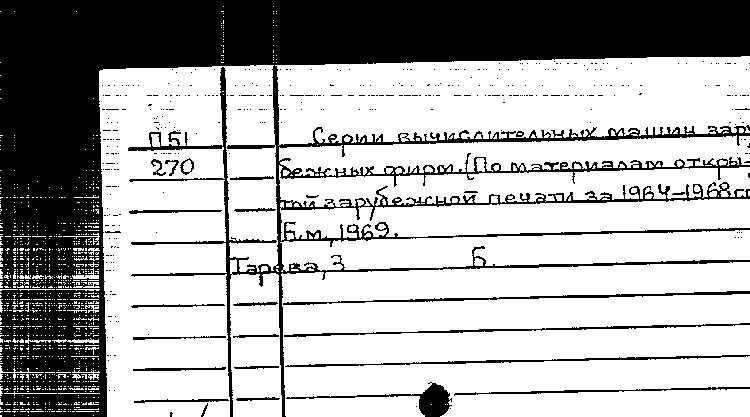 ПБ1 Серии вычислительных машин зару
270 бежных фирм. (По материалам откры-
той зарубежной печати за 1964-1968гг
Б.м., 1969.
Б.